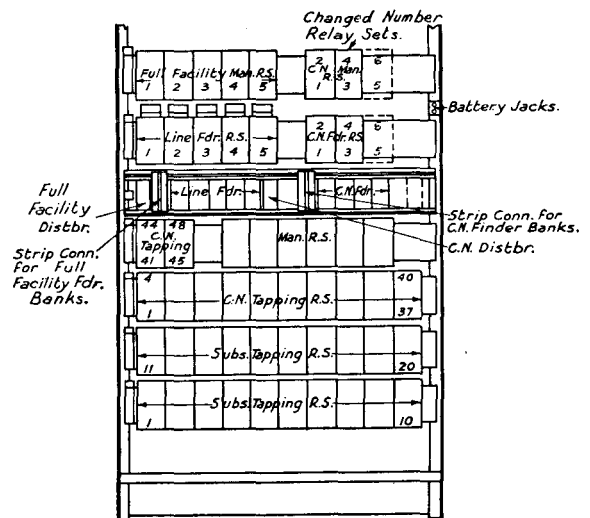 Changed Number
Relay Sets.
Full Facility Man. R.S.
1 2 3 4 5
2 4 6
C.N. Man.
R.S.
1 3 5
Battery Jacks.
Line Fdr. R.S.
1 2 3 4 5
2 4 6
C.N. Fdr. R.S.
1 3 5
Full
Facility
Distbr.
Line Fdr.
C.N. Fdr.
Strip Conn. For
C.N. Finder Banks.
C.N. Distbr.
Strip Conn.
for Full
Facility Fdr.
Banks.
44 48
C.N.
Tapping
41 45
Man. R.S.
4 40
C.N. Tapping R.S.
1 37
Subs. Tapping R.S.
11 20
Subs. Tapping R.S.
1 10